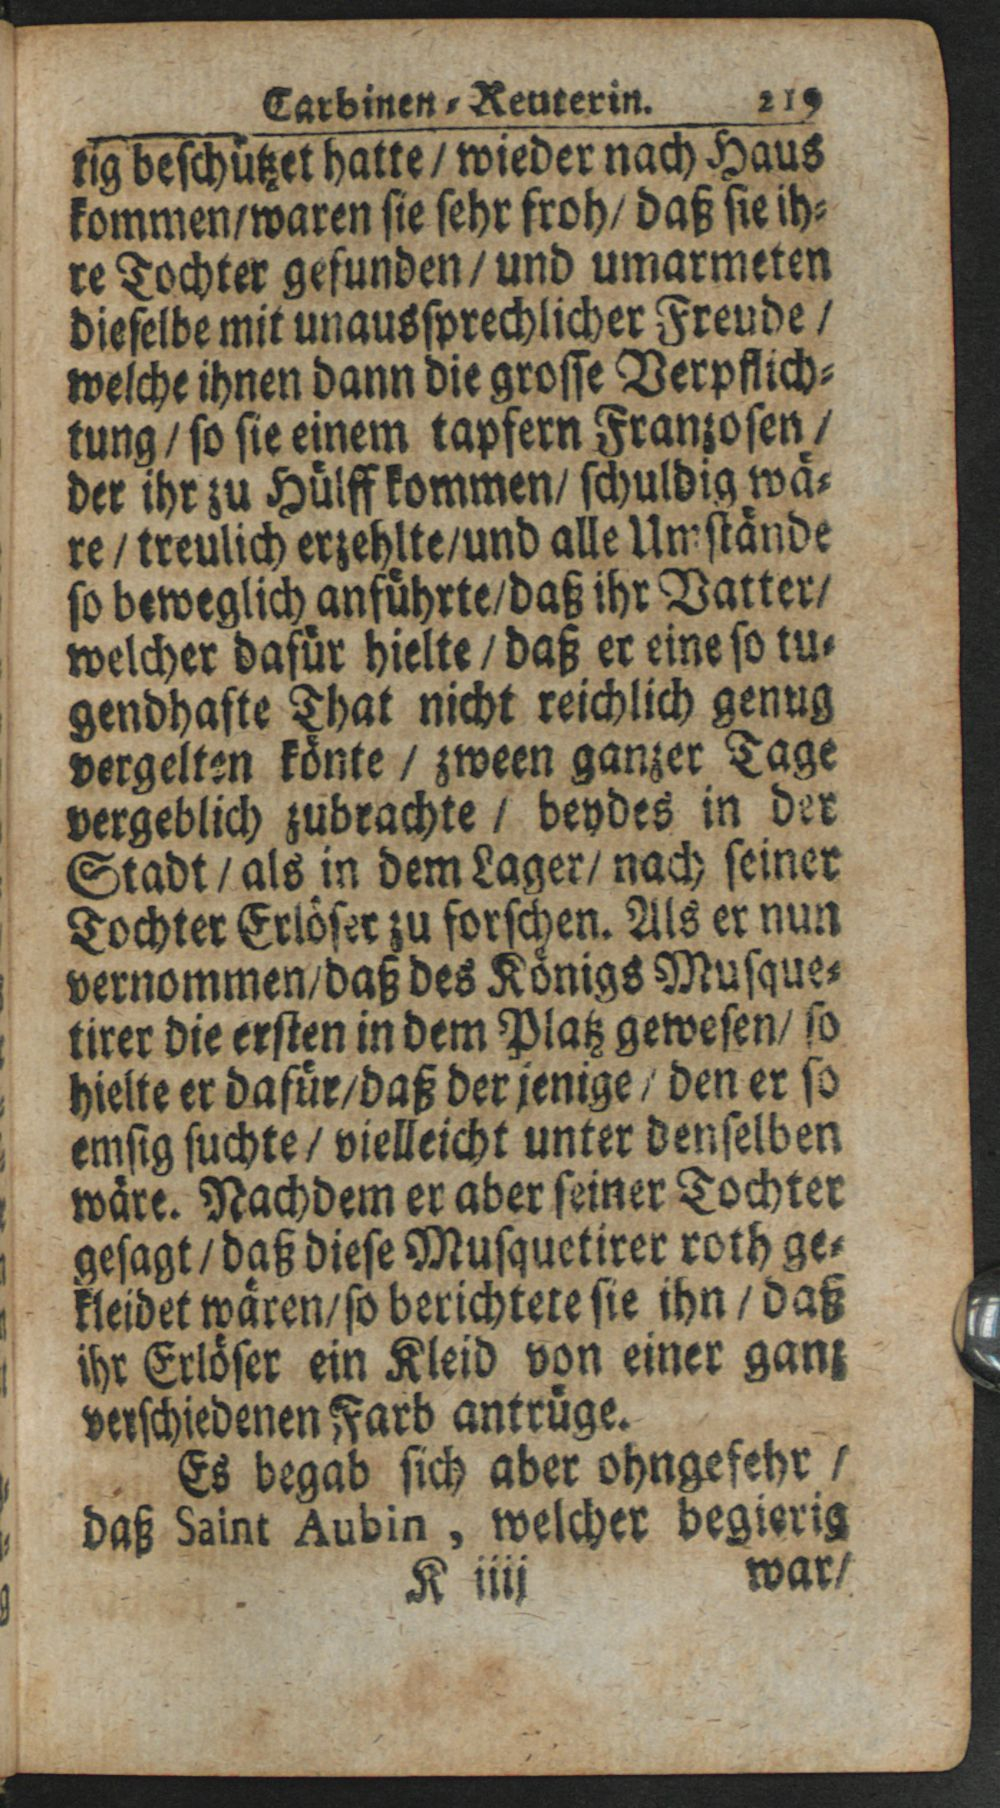 Carbinen-Reuterin. 219
tig beschützet hatte / wieder nach Haus
kommen/waren sie sehr froh/ daß sie ih-
re Tochter gefunden / und umarmeten
dieselbe mit unaussprechlicher Freude /
welche ihnen dann die grosse Verpflich-
tung / so sie einem tapfern Franzosen /
der ihr zu Hülff kommen/ schuldig wä-
re / treulich erzehlte/und alle Umstände
so beweglich anführte/daß ihr Vatter/
welcher dafür hielte / daß er eine so tu-
gendhafte That nicht reichlich genug
vergelten könte / zween ganzer Tage
vergeblich zubrachte / beydes in der
Stadt / als in dem Lager/ nach seiner
Tochter Erlöser zu forschen. Als er nun
vernommen/daß des Königs Musque-
tirer die ersten in dem Platz gewesen/ so
hielte er dafür/daß der jenige / den er so
emsig suchte / vielleicht unter denselben
wäre. Nachdem er aber seiner Tochter
gesagt / daß diese Musquetirer roth ge-
kleidet wären/so berichtete sie ihn / daß
ihr Erlöser ein Kleid von einer ganz
verschiedenen Farb antrüge.
Es begab sich aber ohngefehr /
daß Saint Aubin , welcher begierig
K iiij war/